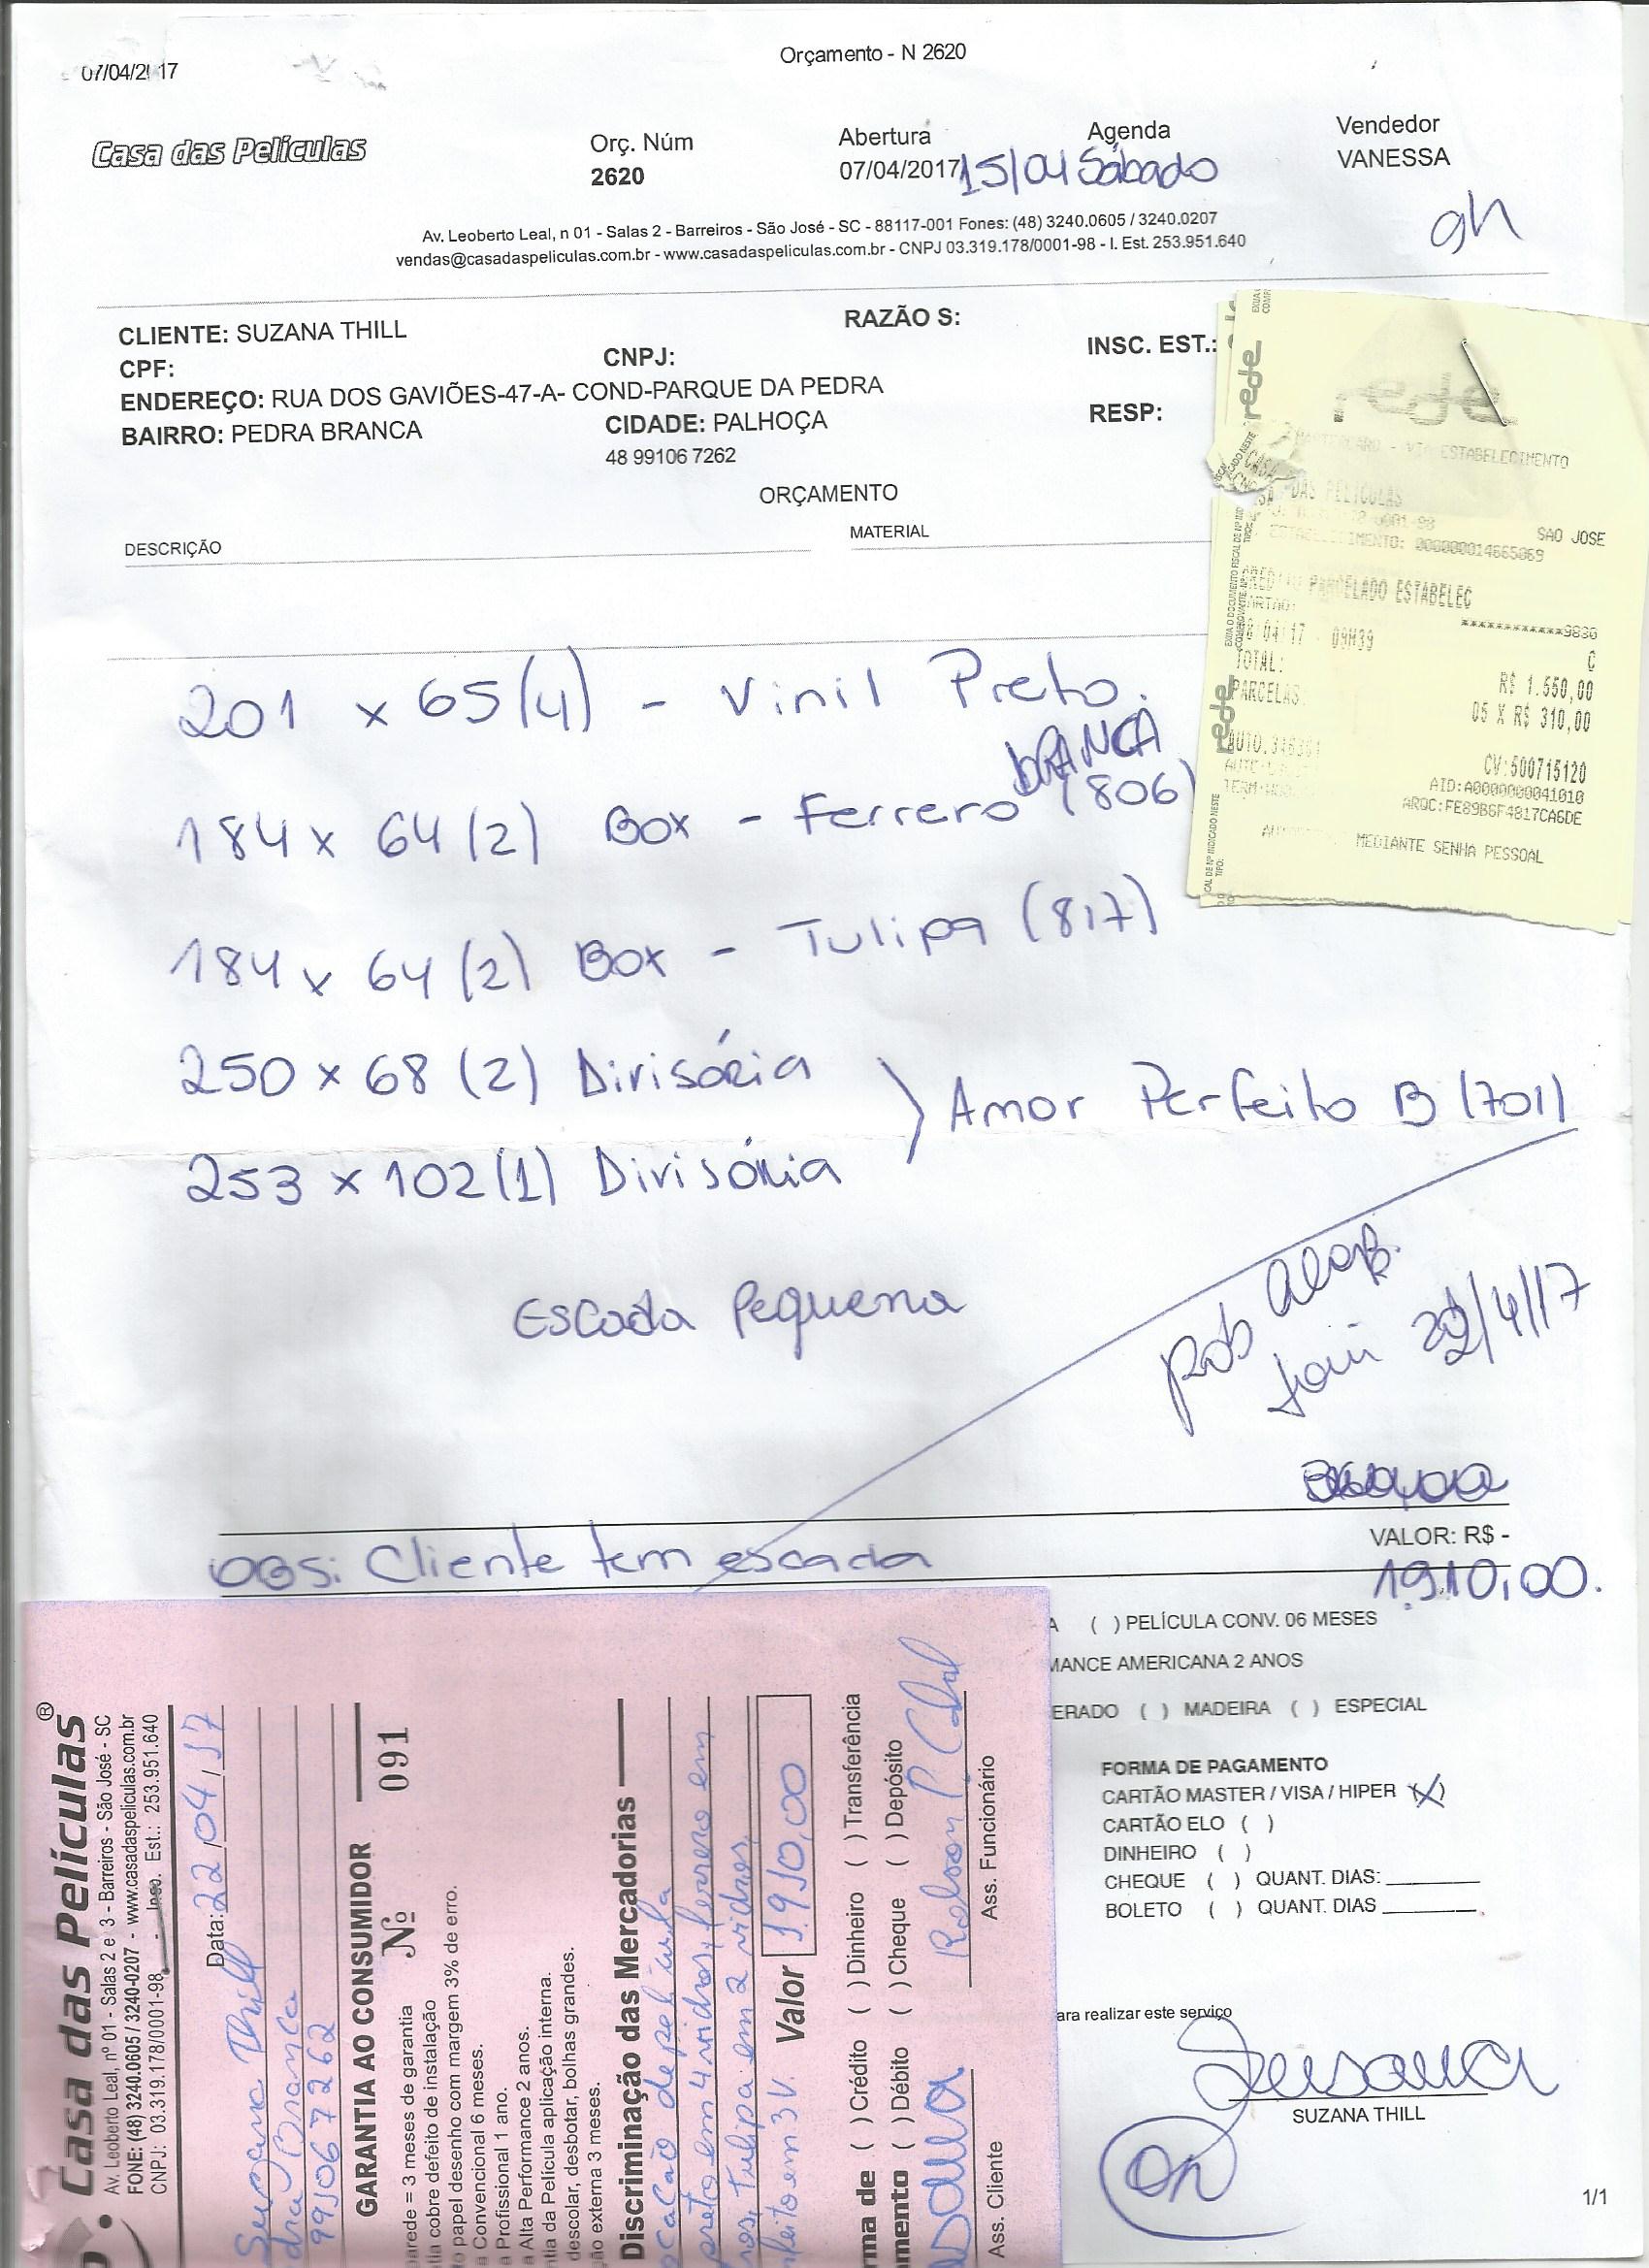 07/04/2017
Orçamento - N 2620
Casa das Películas
Orç. Núm
2620
Abertura
07/04/2017
Agenda
15/04 Sábado
Vendedor
VANESSA
9h
Av. Leoberto Leal, n 01 - Salas 2 - Barreiros - São José - SC - 88117-001 Fones: (48) 3240.0605 / 3240.0207
vendas@casadaspeliculas.com.br - www.casadaspeliculas.com.br - CNPJ 03.319.178/0001-98 - I. Est. 253.951.640
CLIENTE: SUZANA THILL
RAZÃO S:
CPF:
CNPJ:
INSC. EST.:
ENDEREÇO: RUA DOS GAVIÕES-47-A- COND-PARQUE DA PEDRA
BAIRRO: PEDRA BRANCA
CIDADE: PALHOÇA
RESP:
48 99106 7262
ORÇAMENTO
DESCRIÇÃO
MATERIAL
201 x 65 (4) - Vinil Preto.
BRANCA
184 x 64 (2) Box - Ferrero (806)
184 x 64 (2) Box - Tulipa (817)
250 x 68 (2) Divisória
Amor Perfeito B (701)
253 x 102 (1) Divisória
Escada Pequena
22/4/17
VALOR: R$ -
1910,00.
OBS: Cliente tem escada
( ) PELÍCULA CONV. 06 MESES
MANCE AMERICANA 2 ANOS
ERADO ( ) MADEIRA ( ) ESPECIAL
FORMA DE PAGAMENTO
CARTÃO MASTER / VISA / HIPER (X)
CARTÃO ELO ( )
DINHEIRO ( )
CHEQUE ( ) QUANT. DIAS:
BOLETO ( ) QUANT. DIAS
ara realizar este serviço
Suzana
SUZANA THILL
OK
1/1
rede
rede
rede
MASTERCARD - VIA ESTABELECIMENTO
CASA DAS PELICULAS
SAO JOSE
ESTABELECIMENTO: 000000014665069
CREDITO PARCELADO ESTABELEC
CARTAO:
************9830
04 17 09H39
C
TOTAL:
R$ 1.550,00
PARCELAS:
05 X R$ 310,00
CV:500715120
AID:A0000000041010
ARQC:FE89B6F4817CA6DE
MEDIANTE SENHA PESSOAL
Casa das Películas®
Av. Leoberto Leal, nº 01 - Salas 2 e 3 - Barreiros - São José - SC
FONE: (48) 3240.0605 / 3240-0207 - www.casadaspeliculas.com.br
CNPJ: 03.319.178/0001-98 - Insc. Est.: 253.951.640
Data: 22/04/17
Suzana Thill
dra Branca
991067262
GARANTIA AO CONSUMIDOR
Nº 091
arede = 3 meses de garantia
tia cobre defeito de instalação
o papel desenho com margem 3% de erro.
a Convencional 6 meses.
a Profissional 1 ano.
a Alta Performance 2 anos.
ntia da Película aplicação interna.
descolar, desbotar, bolhas grandes.
ão externa 3 meses.
Discriminação das Mercadorias
ocação de película
preto em 4 vidros, ferrero em
ros, Tulipa em 2 vidros,
feito em 3 V.
Valor 1910,00
rma de ( ) Crédito ( ) Dinheiro ( ) Transferência
amento ( ) Débito ( ) Cheque ( ) Depósito
Ass. Cliente
Ass. Funcionário